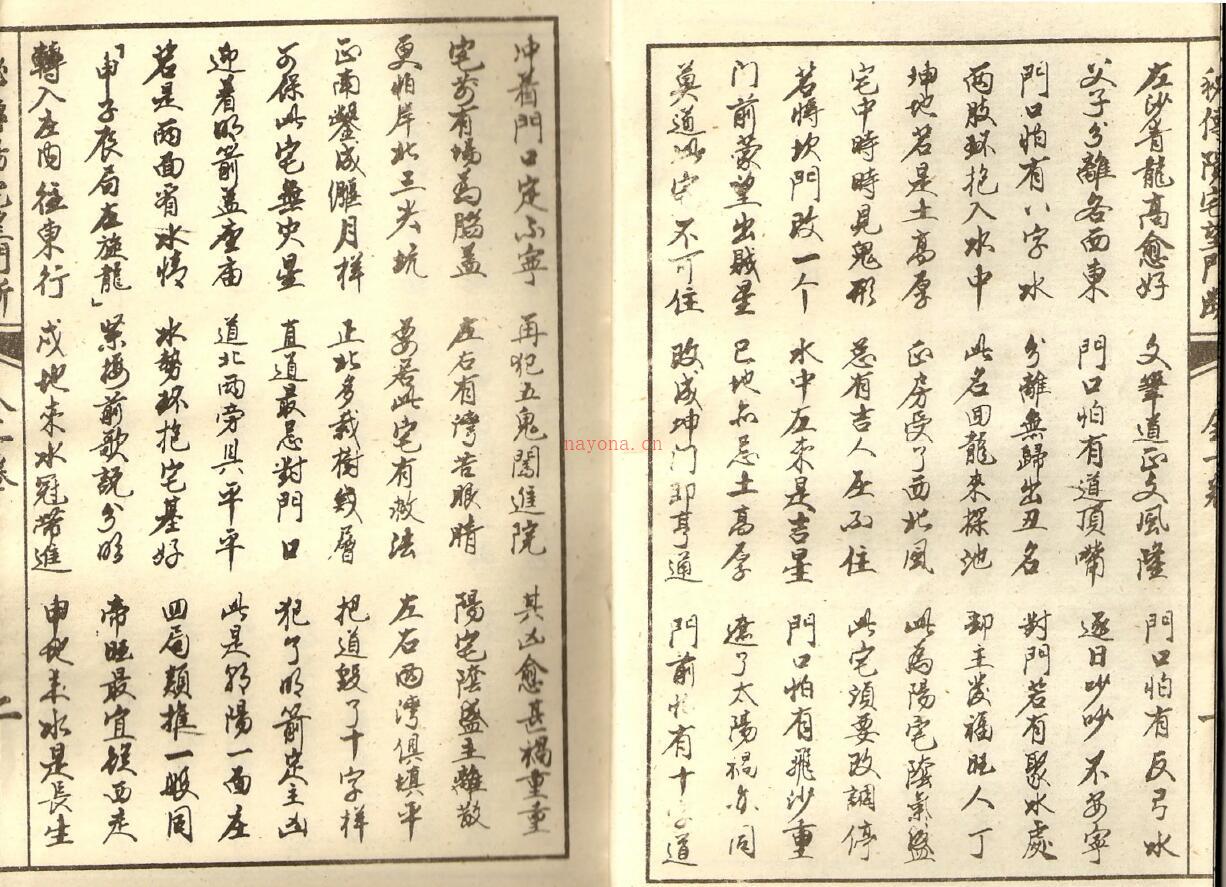 秘傳陽宅望門斷 全一卷 一
左沙青龍高愈好 文筆道正文風隆 門口怕有反弓水
父子分離各西東 門口怕有道頂嘴 逐日吵吵不安寧
門口怕有八字水 分離無歸出丑名 對門若有聚水處
两肢环抱入水中 此名回龍來探池 却主發福旺人丁
坤地若是土高厚 正房受了西北風 此為陽宅陰氣盛
宅中時時見鬼形 总有吉人庄不住 此宅須要改調停
若將坎門改一个 水中左来是吉星 門口怕有飛沙重
門前蒙望出賊星 巳地忌土高厚 遮了太陽禍亦同
莫道此宅不可住 改成坤门即亨通 門前怕有十字道
冲着門口定不寧 再犯五鬼闖進院 其凶愈甚禍重重
宅前有場為腦蓋 左右有灣苦眼睛 陽宅陰盛主離散
更怕岸北三尖坑 要若此宅有救法 左右兩灣俱填平
正南鑿成偃月样 正北多栽樹幾層 把道毀了十字样
可保此宅無灾星 直道最忌對門口 犯了明箭定主凶
迎着明箭蓋庙 道北两旁具平平 此是陽一面庄
若是两面有水情 水勢环抱宅基好 四局類推一般同
「申子辰局左旋龍」 紫接前歌說分明 帝旺最宜娱西走
轉入庄内往東行 戌地来水冠带進 申地来水是長生
二